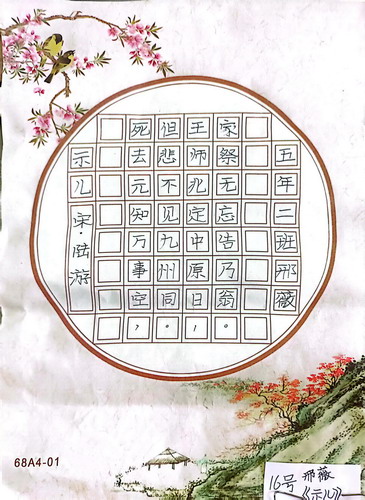 示儿
宋·陆游
死去元知万事空，
但悲不见九州同。
王师北定中原日，
家祭无忘告乃翁。
五年二班邢薇
68A4-01
16号 邢薇
《示儿》